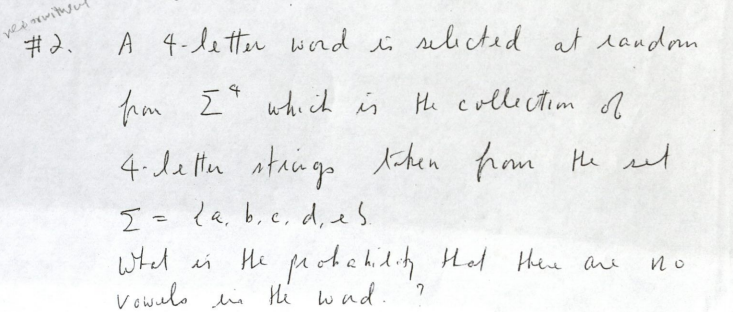 #2. A 4-letter word is selected at random
from Σ⁴ which is the collection of
4-letter strings taken from the set
Σ = {a, b, c, d, e}.
What is the probability that there are no
vowels in the word. ?